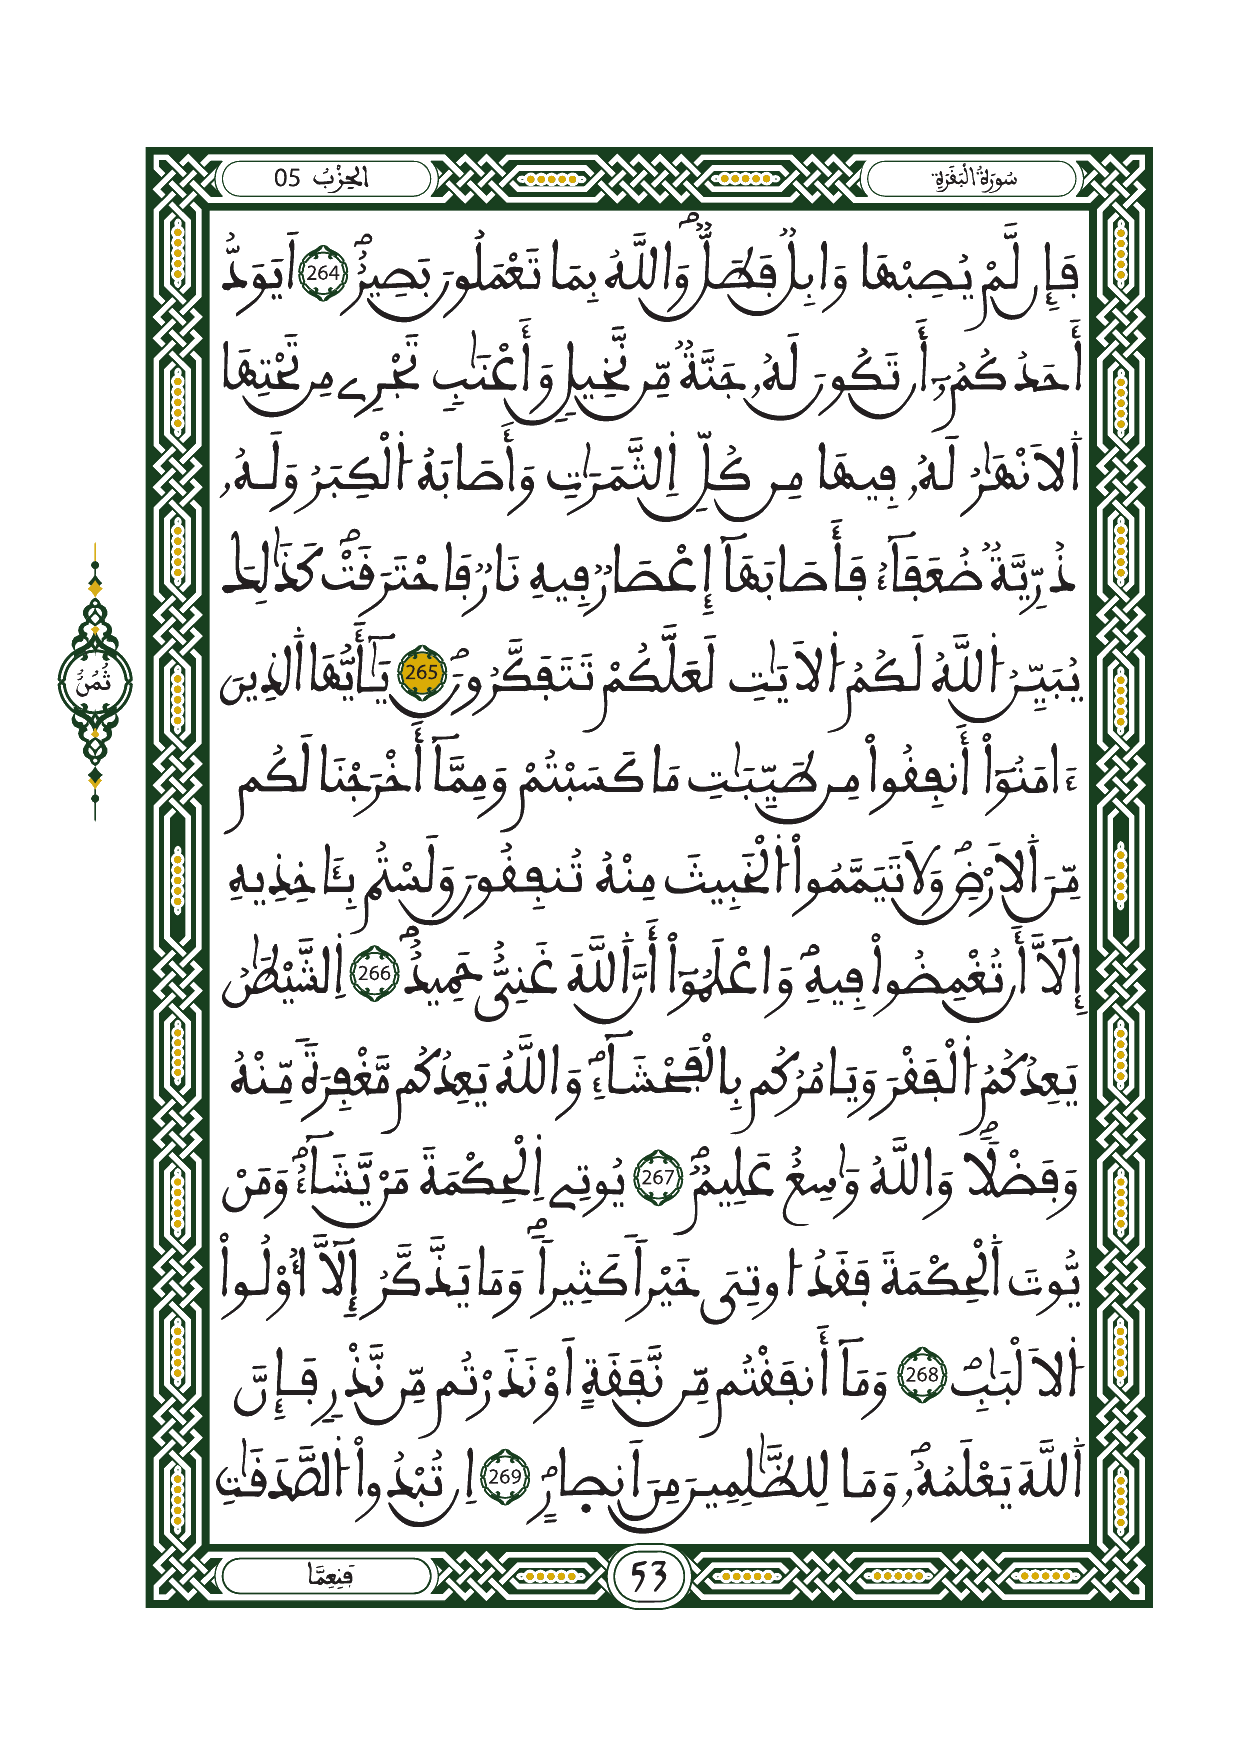 سُورَةُ الْبَقَرَةِ
الحِزْبُ 05
فَإِن لَّمْ يُصِبْهَا وَابِلٌ فَطَلٌّ وَاللَّهُ بِمَا تَعْمَلُونَ بَصِيرٌ 264 اَيَوَدُّ
أَحَدُكُمُۥٓ أَن تَكُونَ لَهُۥ جَنَّةٌ مِّن نَّخِيلٍ وَأَعْنَٰبٍ تَجْرِے مِن تَحْتِهَا
اَ۬لَانْهَٰرُ لَهُۥ فِيهَا مِن كُلِّ اِ۬لثَّمَرَٰتِ وَأَصَابَهُ اُ۬لْكِبَرُ وَلَهُۥ
ذُرِّيَّةٌ ضُعَفَآءُ فَأَصَابَهَآ إِعْصَارٌ فِيهِ نَارٌ فَاحْتَرَقَتْ كَذَٰلِكَ
يُبَيِّنُ اُ۬للَّهُ لَكُمُ اُ۬لَايَٰتِ لَعَلَّكُمْ تَتَفَكَّرُونَ 265 يَٰٓأَيُّهَا اَ۬لذِينَ
ءَامَنُوٓاْ أَنفِقُواْ مِن طَيِّبَٰتِ مَا كَسَبْتُمْ وَمِمَّآ أَخْرَجْنَا لَكُم
مِّنَ اَ۬لَارْضِ وَلَا تَيَمَّمُواْ اُ۬لْخَبِيثَ مِنْهُ تُنفِقُونَ وَلَسْتُم بِـَٔاخِذِيهِ
إِلَّآ أَن تُغْمِضُواْ فِيهِ وَاعْلَمُوٓاْ أَنَّ اَ۬للَّهَ غَنِيٌّ حَمِيدٌ 266 اِ۬لشَّيْطَٰنُ
يَعِدُكُمُ اُ۬لْفَقْرَ وَيَامُرُكُم بِالْفَحْشَآءِ وَاللَّهُ يَعِدُكُم مَّغْفِرَةً مِّنْهُ
وَفَضْلًا وَاللَّهُ وَٰسِعٌ عَلِيمٌ 267 يُوتِے اِ۬لْحِكْمَةَ مَنْ يَّشَآءُ وَمَنْ
يُّوتَ اَ۬لْحِكْمَةَ فَقَدُ ا۟وتِيَ خَيْراً كَثِيراً وَمَا يَذَّكَّرُ إِلَّآ أُوْلُواْ
اُ۬لَالْبَٰبِ 268 وَمَآ أَنفَقْتُم مِّن نَّفَقَةٍ اَوْ نَذَرْتُم مِّن نَّذْرٍ فَإِنَّ
اَ۬للَّهَ يَعْلَمُهُۥ وَمَا لِلظَّٰلِمِينَ مِنَ اَنصارٍ 269 اِن تُبْدُواْ اُ۬لصَّدَقَٰتِ
ثُمُنُ
فَنِعِمَّا
53